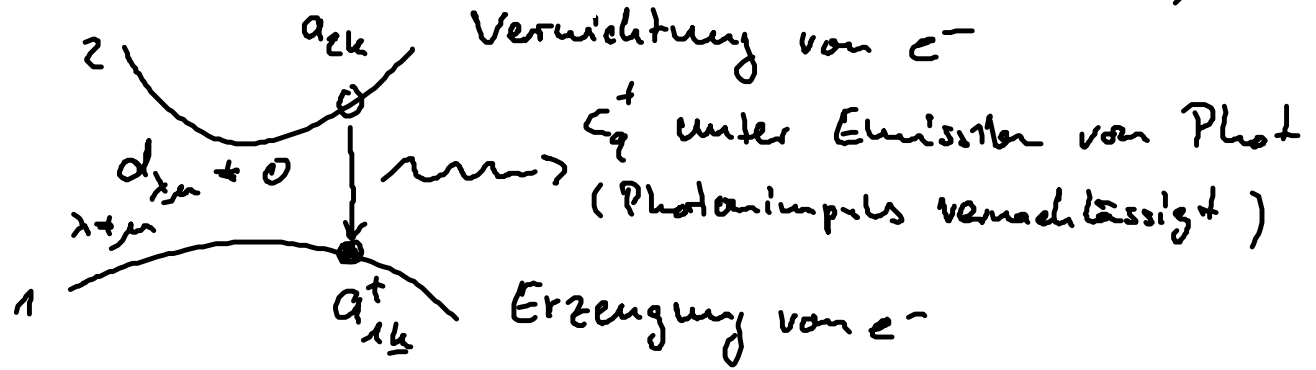 2 a_{2k} Vernichtung von e^-
c_q^+ unter Emission von Phot
d_{λμ} ≠ 0 (Photonimpuls vernachlässigt)
λ≠μ
1 a^+_{1k} Erzeugung von e^-